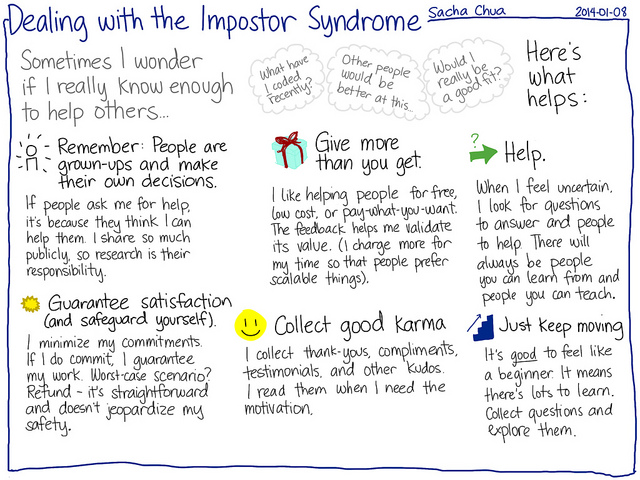 Dealing with the Impostor Syndrome
Sacha Chua
2014-01-08
Sometimes I wonder
if I really know enough
to help others...
What have
I coded
recently?
Other people
would be
better at this...
Would I
really be
a good fit?
Here's
what
helps:
Remember: People are
grown-ups and make
their own decisions.
If people ask me for help,
it's because they think I can
help them. I share so much
publicly, so research is their
responsibility.
Give more
than you get.
I like helping people for free,
low cost, or pay-what-you-want.
The feedback helps me validate
its value. (I charge more for
my time so that people prefer
scalable things).
?
Help.
When I feel uncertain,
I look for questions
to answer and people
to help. There will
always be people
you can learn from and
people you can teach.
Guarantee satisfaction
(and safeguard yourself).
I minimize my commitments.
If I do commit, I guarantee
my work. Worst-case scenario?
Refund - it's straightforward
and doesn't jeopardize my
safety.
Collect good karma
I collect thank-yous, compliments,
testimonials, and other kudos.
I read them when I need the
motivation.
Just keep moving
It's good to feel like
a beginner. It means
there's lots to learn.
Collect questions and
explore them.